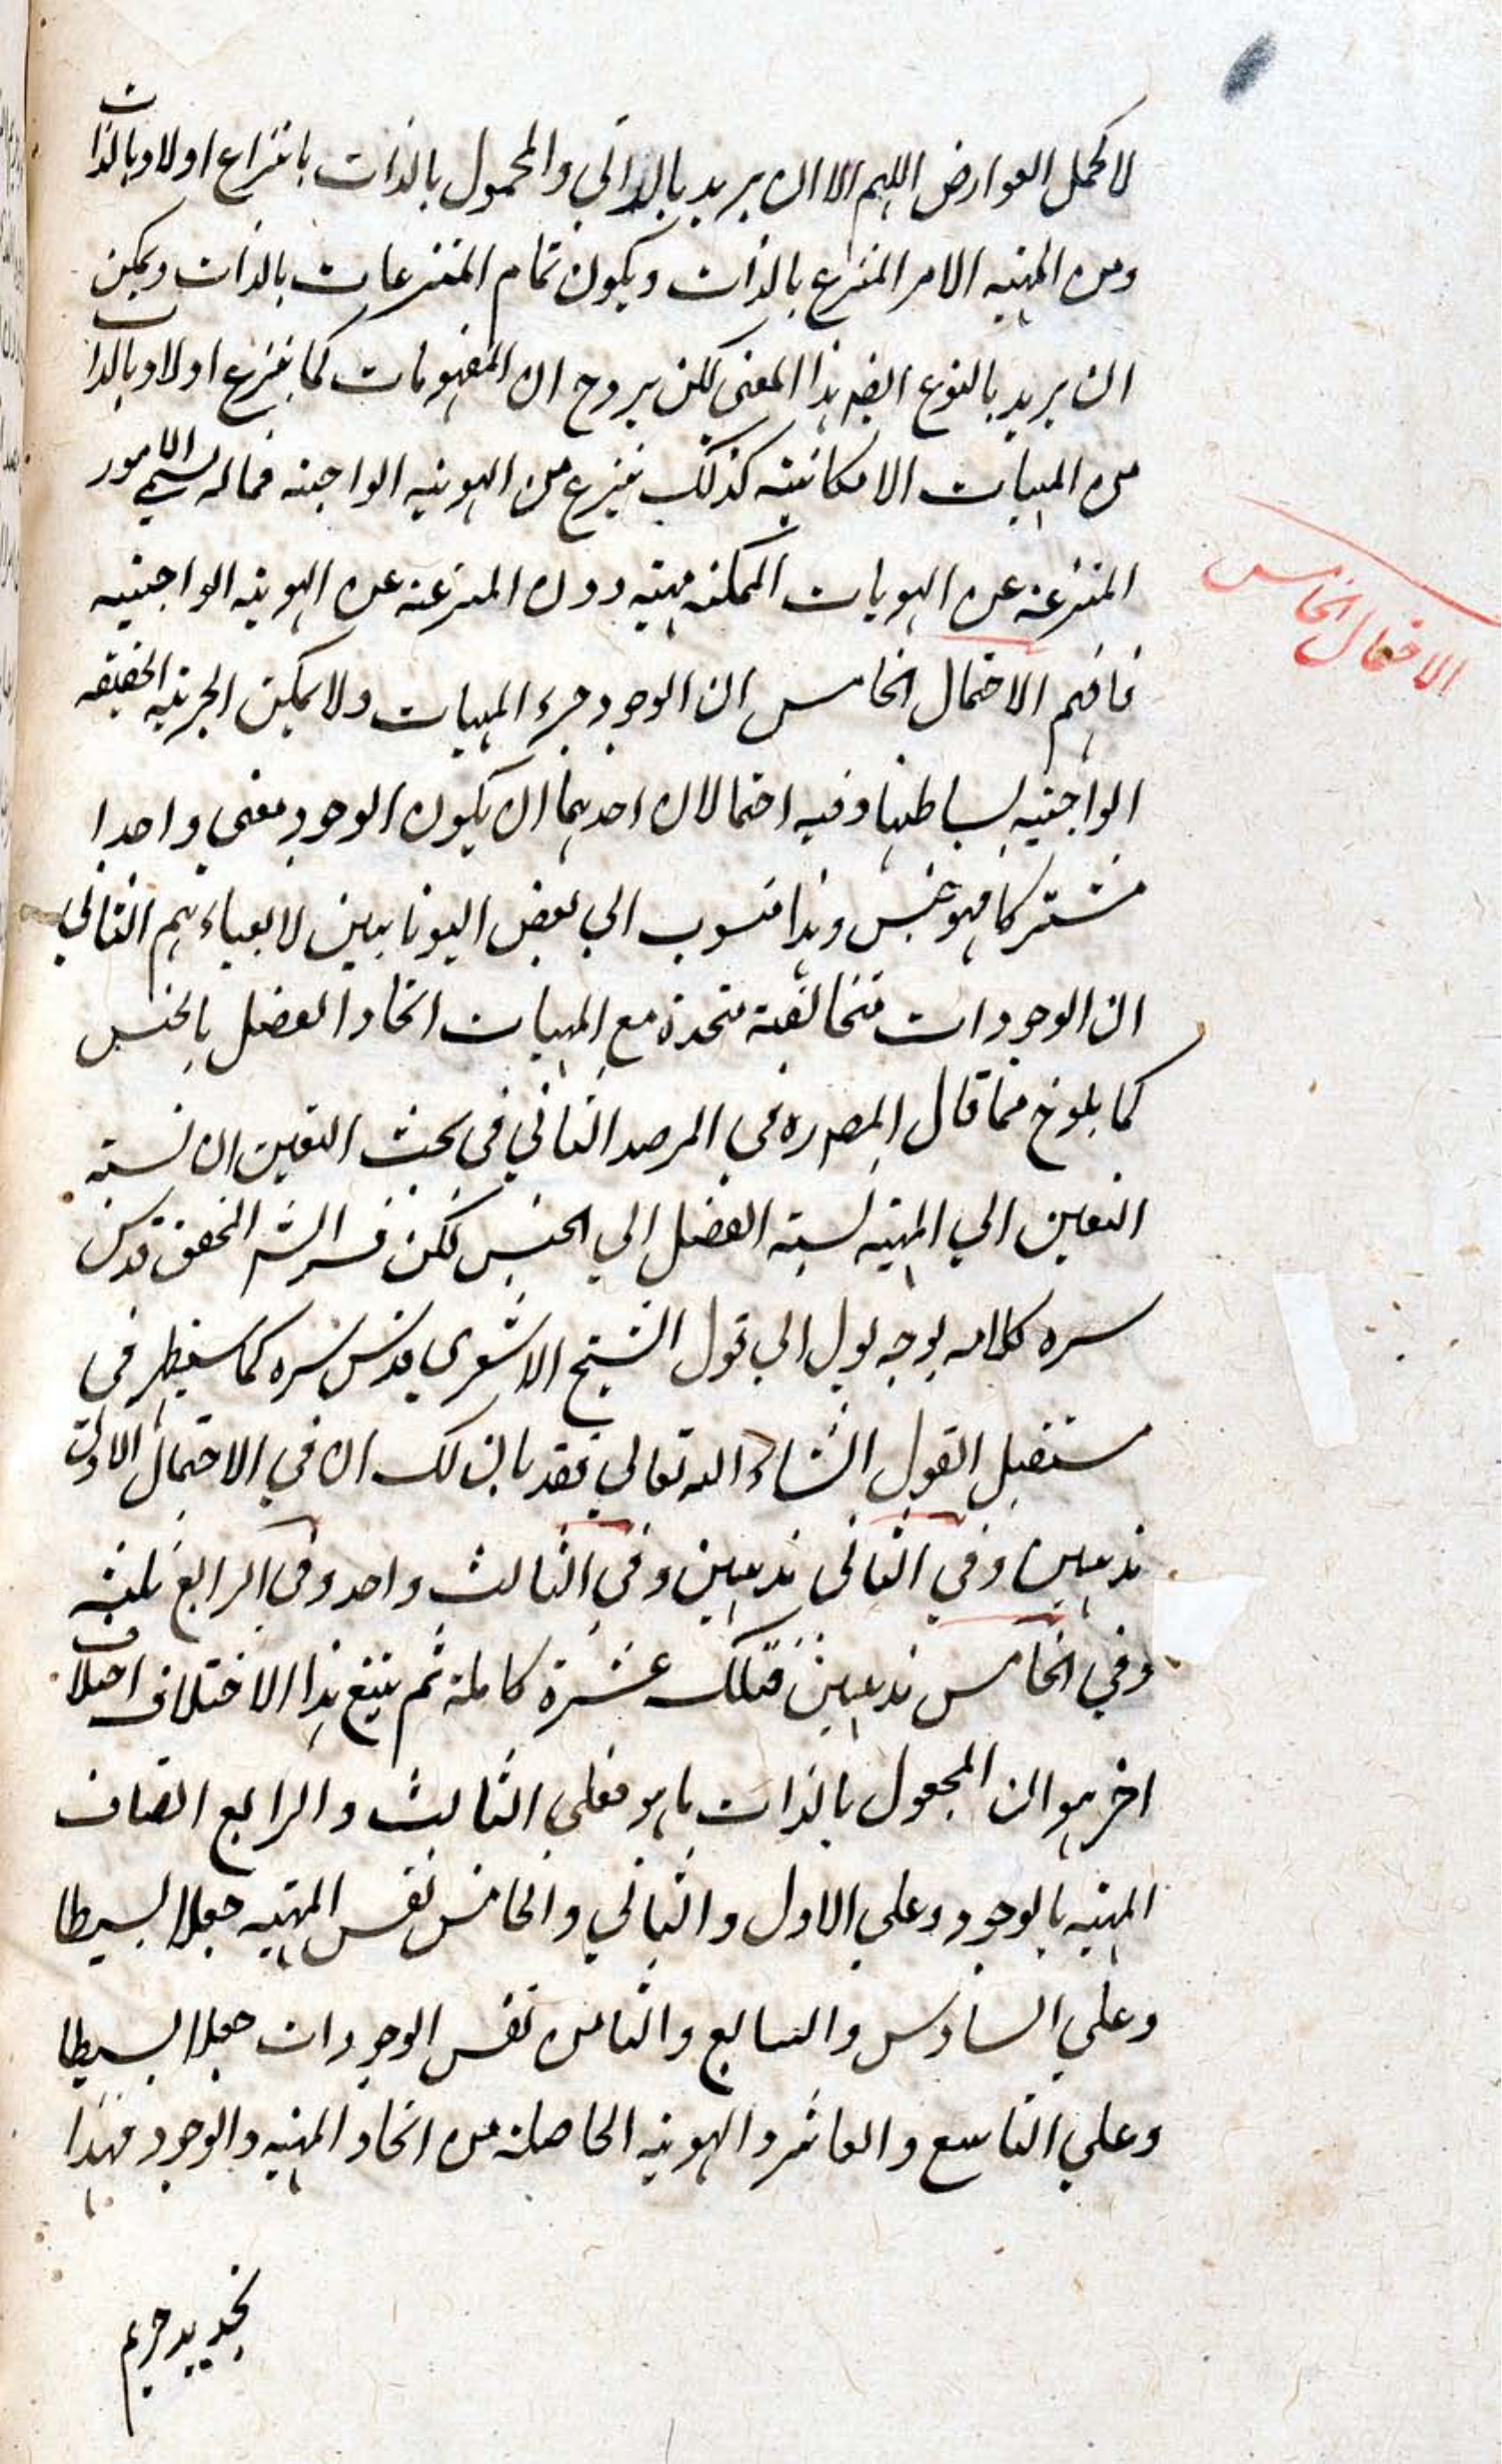 لا كحمل العوارض اللهم الا ان يريد بالذاتي والمحمول بالذات بانتزاع اولا وبالذات
ومن المهيه الامر المنتزع بالذات ويكون تمام المنتزعات بالذات ويمكن
ان يريد بالنوع ايضه هذا المعنى لكن يروح ان المفهومات كما ينتزع اولا وبالذات
من المهيات الامكانية كذلك ينتزع من الهويه الواجبه فما له يسمي الامور
المنتزعة عن الهويات الممكنه مهيه دون المنتزعة عن الهويه الواجبيه
فافهم الاحتمال الخامس ان الوجود جزء المهيات ولا يمكن الجزئيه الحقيقه
الواجبيه لبساطتها وفيه احتمالان احديهما ان يكون الوجود معنى واحدا
مشتركا فهو جنس وهذا منسوب الي بعض اليونانيين لا يعباء بهم الثاني
ان الوجودات متخالفة متحدة مع المهيات اتحاد الفصل بالجنس
كما يلوح مما قال المصدره في المرصد الثاني في بحث التعين ان نسبته
التعين الي المهيه نسبته الفصل الي الجنس لكن فسر الشه المحقق قدس
سره كلامه بوجه يول الي قول الشيخ الاشعري قدس سره كما سيظهر في
مستقبل القول انشاء الله تعالي فقد بان لك ان في الاحتمال الاول
مذهبين وفي الثاني مذهبين وفي الثالث واحد وفي الرابع ثلثه
وفي الخامس مذهبين فتلك عشرة كاملة ثم يتبع هذا الاختلاف اختلاف
اخر هو ان المجعول بالذات ما هو فعلي الثالث والرابع اتصاف
المهيه بالوجود وعلي الاول والثاني والخامس نفس المهيه جعلا بسيطا
وعلي السادس والسابع والثامن نفس الوجودات جعلا بسيطا
وعلي التاسع والعاشر والهويه الحاصلة من اتحاد المهيه والوجود فهذا
الاحتمال الخامس